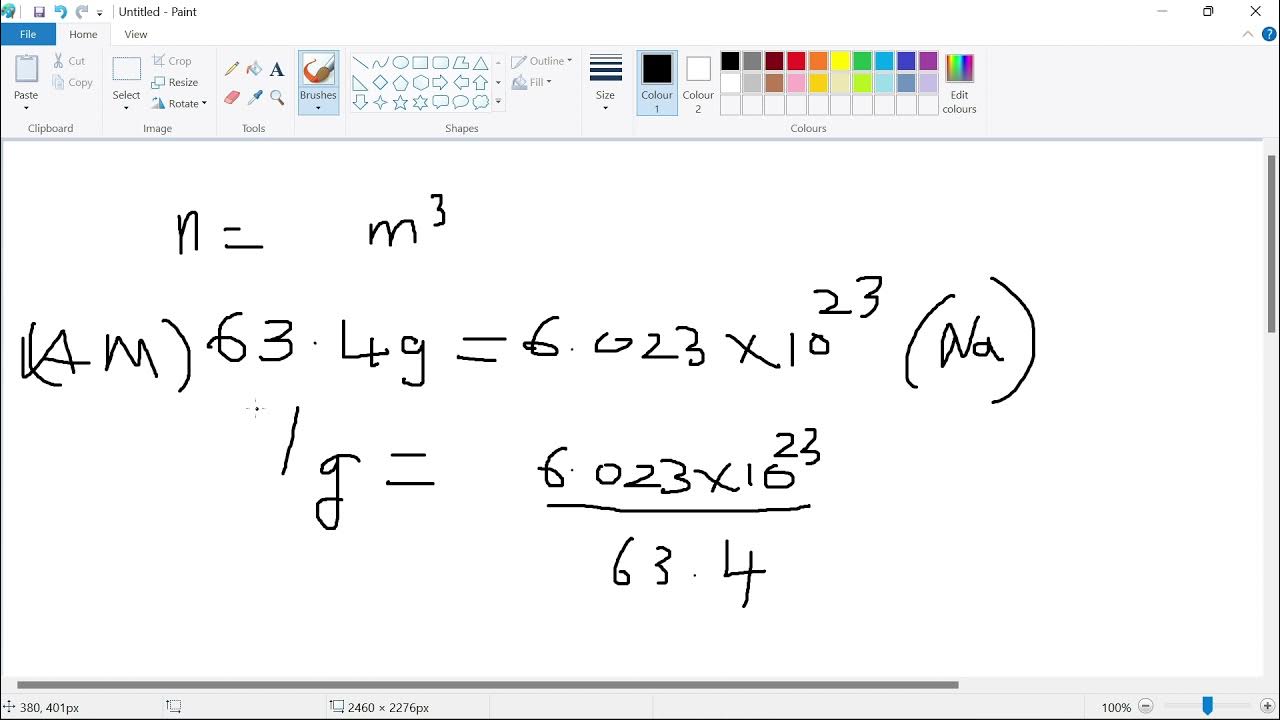 Untitled - Paint
File Home View
Paste
Cut
Copy
Clipboard
Select
Crop
Resize
Rotate
Image
Tools
Brushes
Shapes
Outline
Fill
Size
Colour 1
Colour 2
Edit colours
Colours
n = m³
(AM) 63.4g = 6.023×10²³ (Na)
1g = 6.023×10²³
63.4
380, 401px
2460 × 2276px
100%